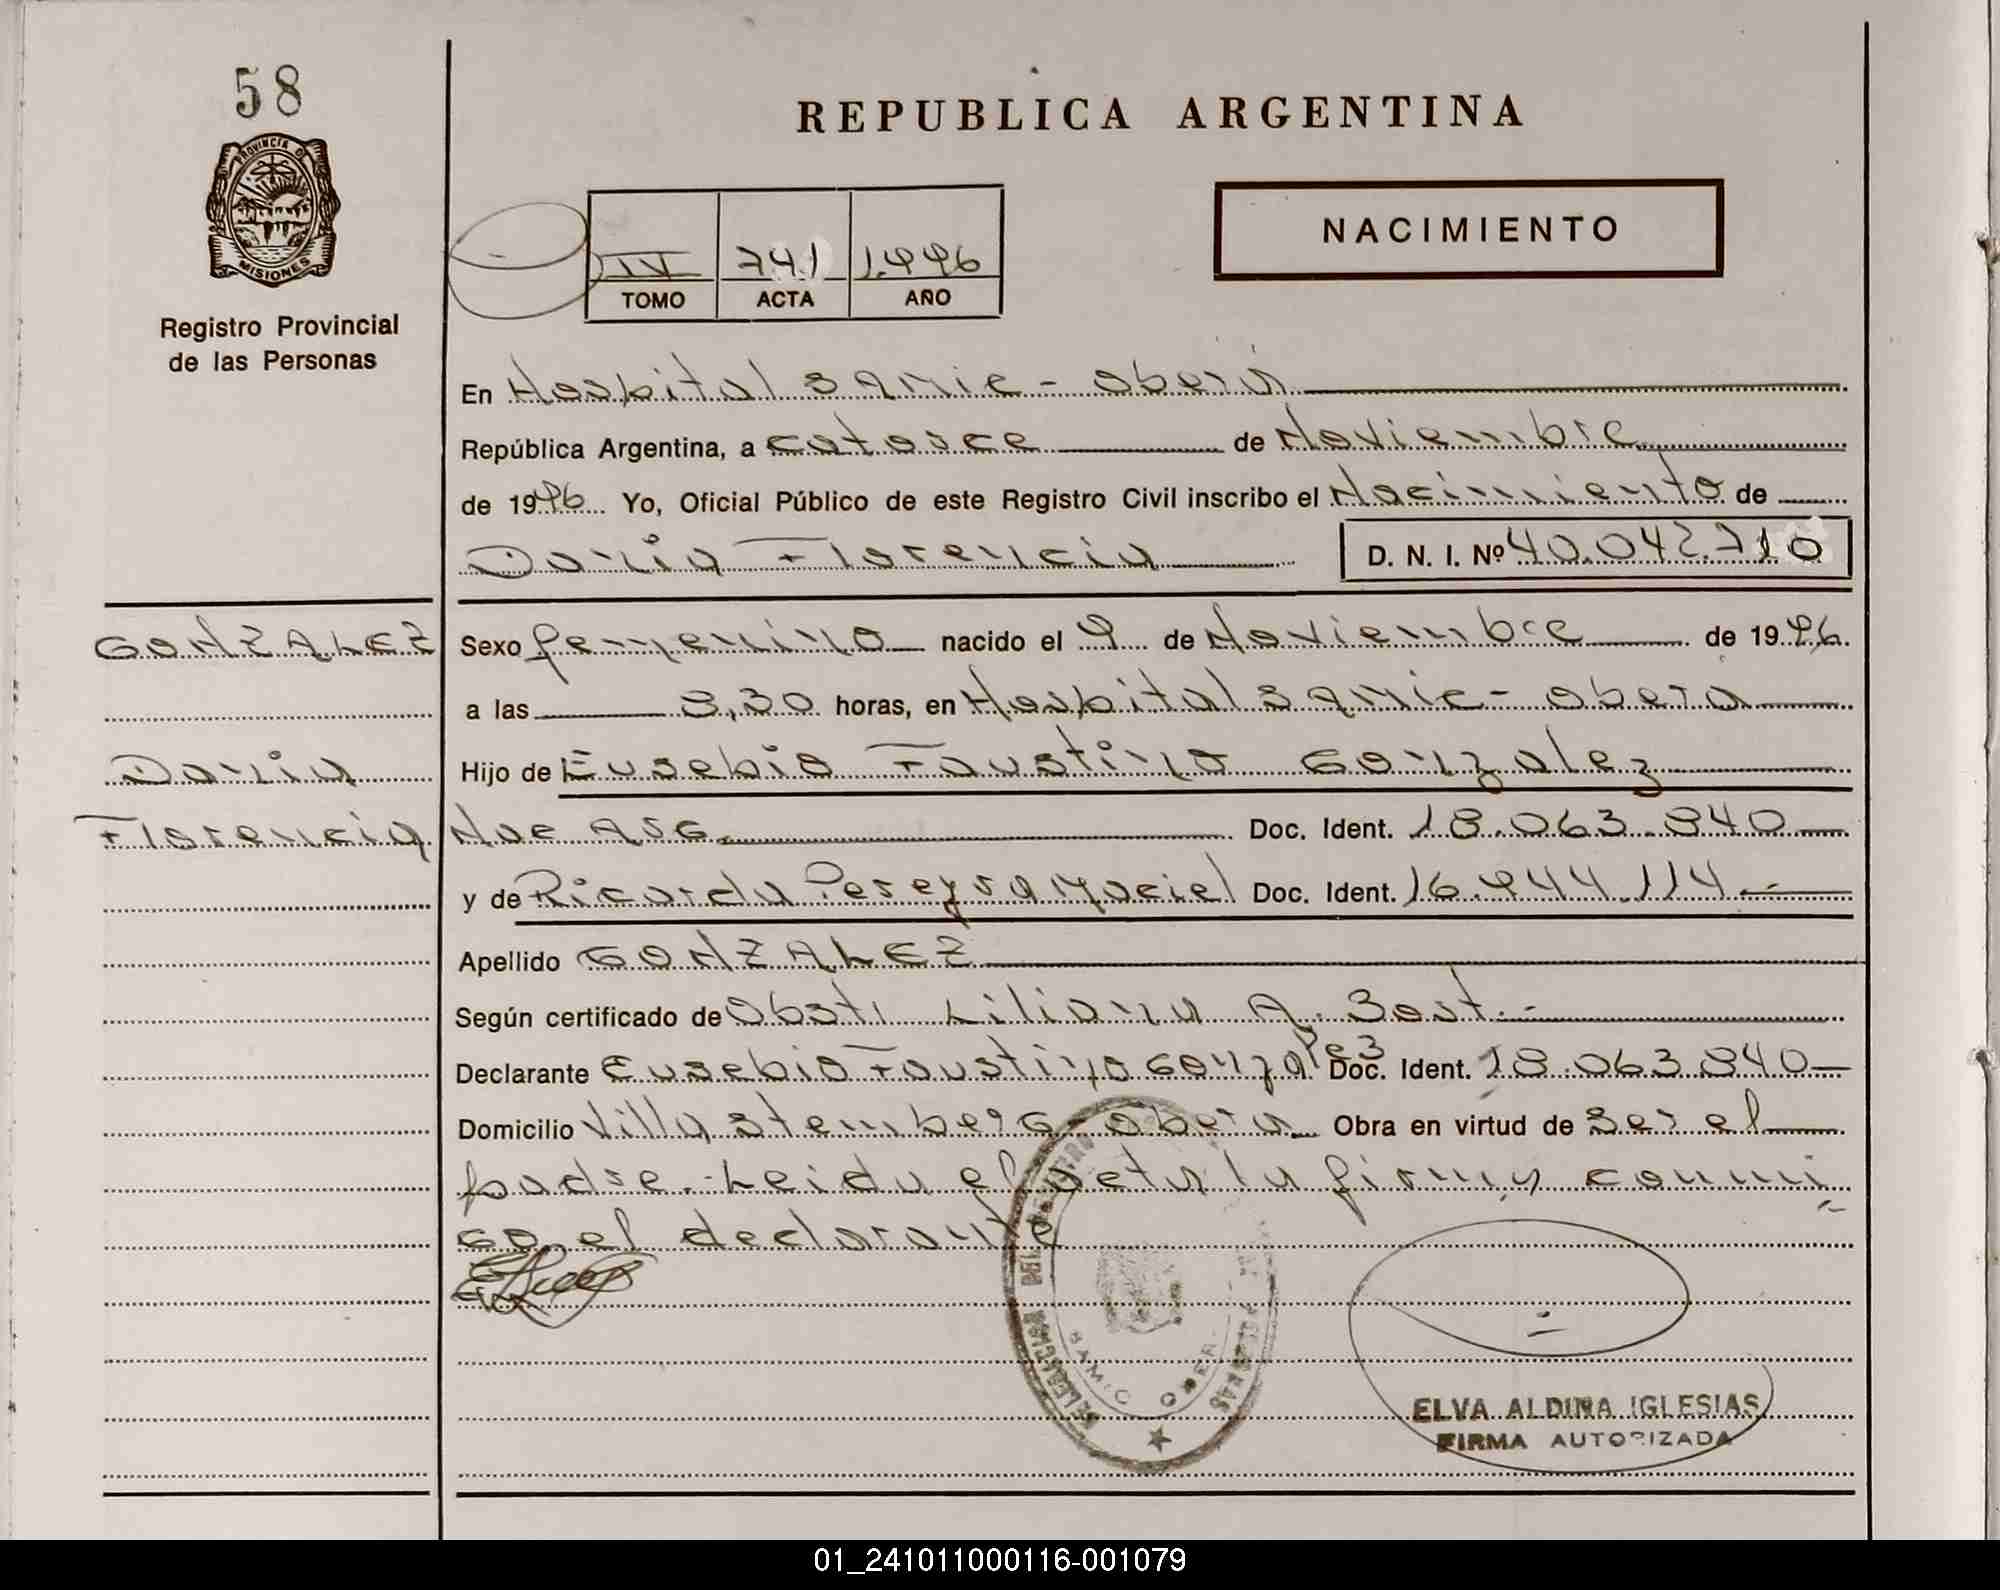 58
PROVINCIA DE
MISIONES
Registro Provincial
de las Personas
REPUBLICA ARGENTINA
NACIMIENTO
IV 741 1.996
TOMO ACTA AÑO
En Hospital SAMIC - Oberá
República Argentina, a catorce de Noviembre
de 1996 Yo, Oficial Público de este Registro Civil inscribo el Nacimiento de
Dania Florencia D. N. I. Nº 40.042.710
GONZALEZ
Dania
Florencia
Sexo femenino nacido el 9 de Noviembre de 1996.
a las 8,30 horas, en Hospital SAMIC - Obera
Hijo de Eusebio Faustino Gonzalez
Nac Arg. Doc. Ident. 18.063.840
y de Ricarda Pereyra Maciel Doc. Ident. 16.944.114.-
Apellido GONZALEZ
Según certificado de Obst. Liliana A. Sost.-
Declarante Eusebio Faustino Gonzalez Doc. Ident. 18.063.840
Domicilio Villa Stemberg Obera Obra en virtud de ser el
padre.- Leida el acta la firma conmi
go el declarante
DEL REGISTRO
SAMIC OBER
ELVA ALDINA IGLESIAS
FIRMA AUTORIZADA
01_241011000116-001079